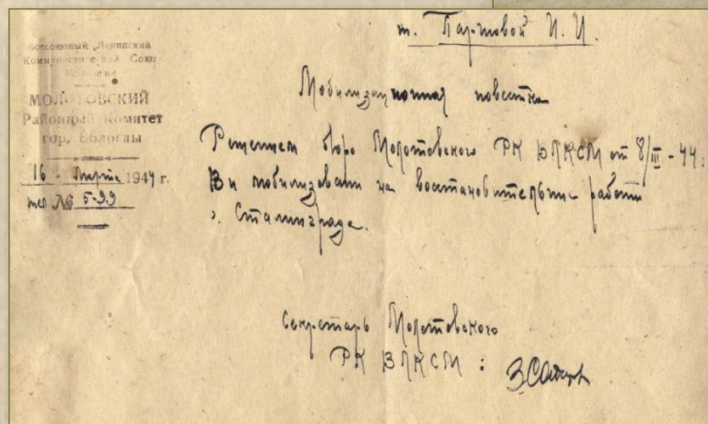 т. Партовой И. И.
Всесоюзный Ленинский
Коммунистический Союз
Молодежи
МОЛОТОВСКИЙ
Районный Комитет
гор. Вологды
16 - марта 1944 г.
№ 5-99
Мобилизационная повестка
Решением бюро Молотовского РК ВЛКСМ от 8/III - 44.
Вы мобилизованы на востановительные работы
г. Сталинграда.
Секретарь Молотовского
РК ВЛКСМ :